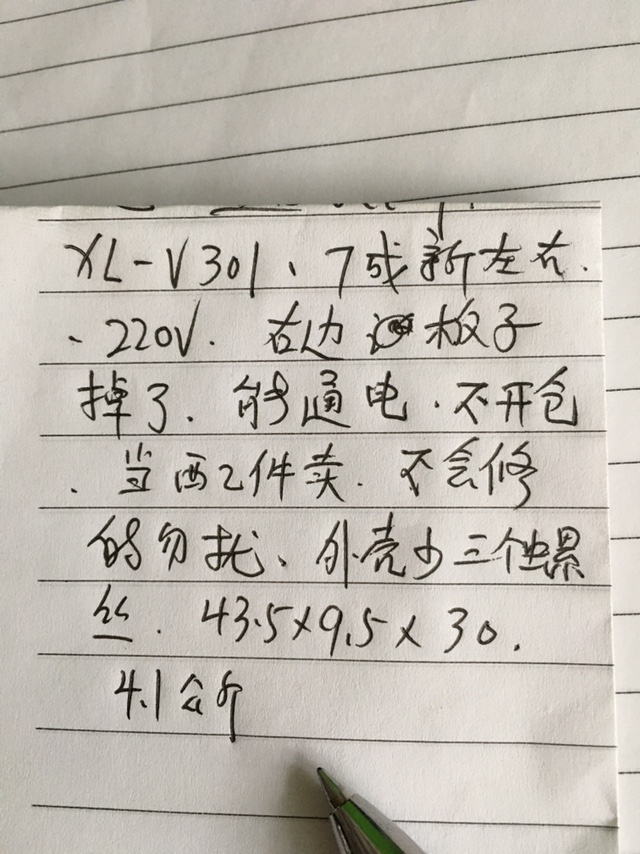 XL-V301、7成新左右.
、220V. 右边板子
掉了. 能通电.不开仓
. 当西乙件卖. 不会修
的勿扰、外壳少三个螺
丝. 43.5×9.5×30.
4.1公斤